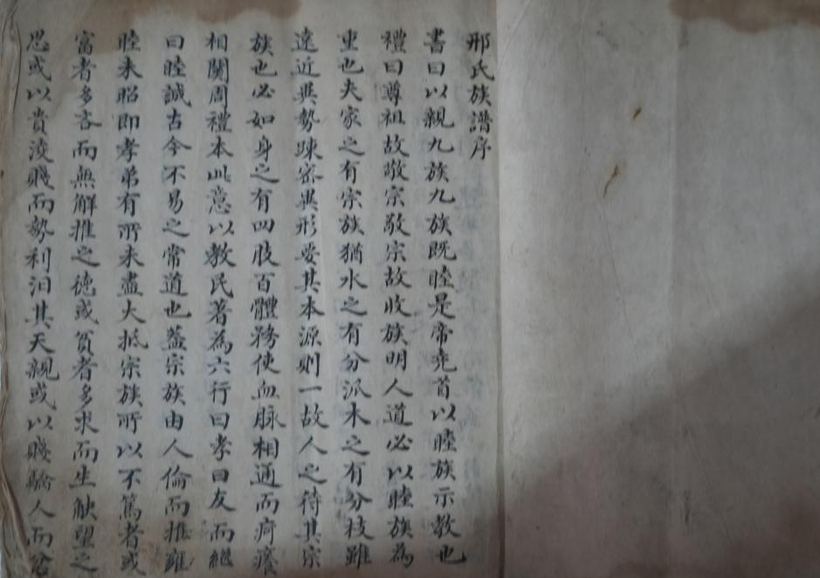 邢氏族譜序
書曰以親九族九族既睦是帝堯首以睦族示教也
禮曰尊祖故敬宗敬宗故收族明人道必以睦族為
重也夫家之有宗族猶水之有分派木之有分枝雖
遠近異勢踈密異形要其本源則一故人之待其宗
族也必如身之有四肢百體務使血脉相通而疴癢
相関周禮本此意以教民著為六行曰孝曰友而繼
曰睦誠古今不易之常道也葢宗族由人倫而推雍
睦未昭即孝弟有所未盡大抵宗族所以不篤者或
富者多吝而無解推之徳或貧者多求而生觖望之
思或以貴凌賤而勢利汩其天親或以賤驕人而忿